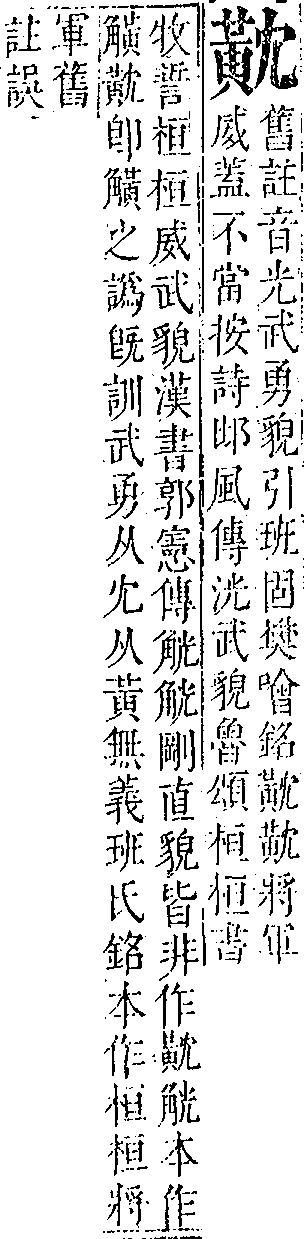 黆
舊註音光武勇貌引班固樊噲銘黆黆將軍
威蓋不當按詩邶風傳洸武貌魯頌桓桓書
牧誓桓桓威武貌漢書郭憲傳觥觥剛直貌皆非作黆觥本作
觵黆卽觵之譌旣訓武勇从冘从黃無義班氏銘本作桓桓將
軍舊
註誤